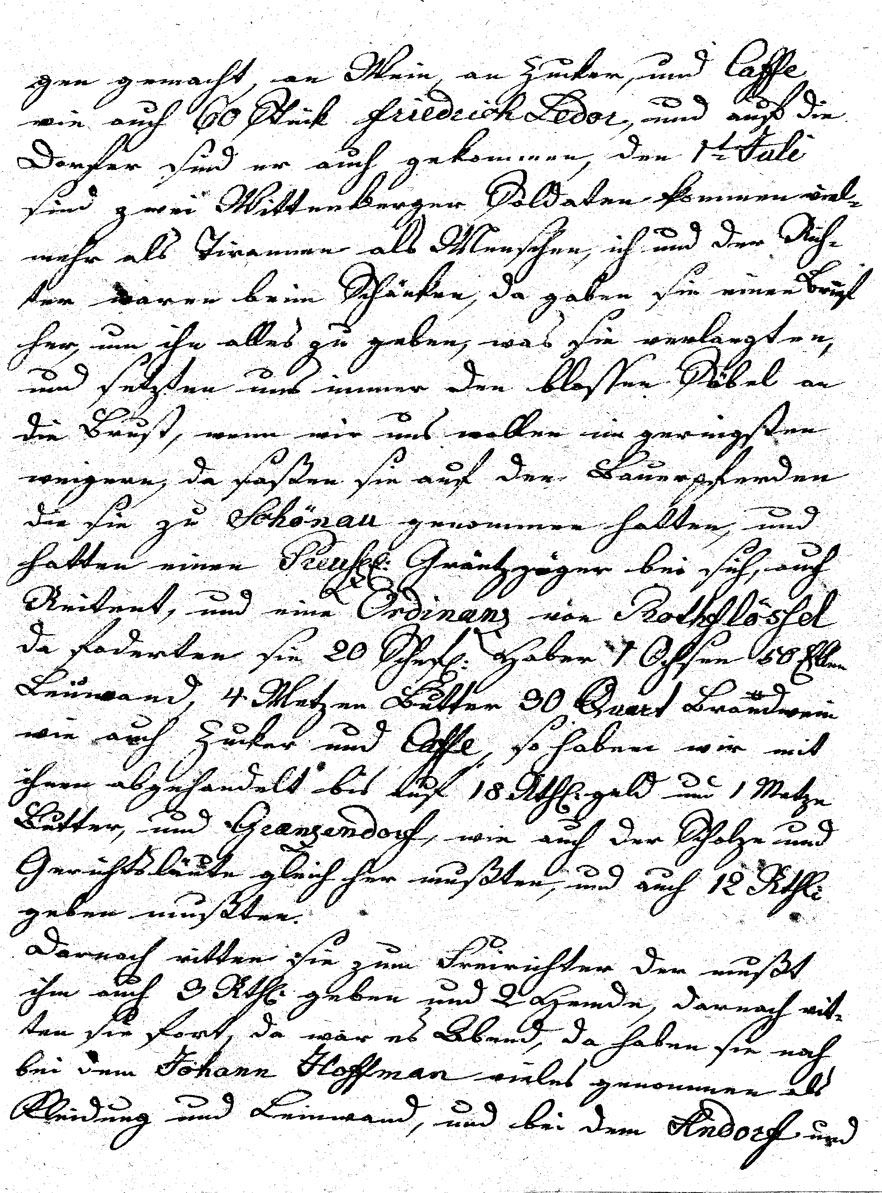 gen gemacht, an Wein, an Zucker, und Caffe,
wie auch 60 Stük FriedrichLedor, und auf die
Dorfer sind er auch gekommen, den 1t Juli
sind zwei Wittenberger Soldaten kommen viel-
mehr als Tirannen als Menschen, ich und der Rich-
ter waren beim Schänken, da gaben sie einen Brief
her, um ihn alles zu geben, was sie verlangten,
und setzten uns immer den blossen Säbel an
die Brust, wenn wir uns wollen im geringsten
weigern, da saßen sie auf der Bauerpferden
die sie zu Schönau genommen hatten, und
hatten einen Preuss: Gräntzjäger bei sich, auch
Reitent, und eine Ordinanz von Rothflössel
da foderten sie 20 Schefl: Haber 1 Ochsen 50 Ellen
Leinwand, 4 Metzen Butter 30 Quart Brandwein
wie auch Zucker und Caffe, so haben wir mit
ihnen abgehandelt bis auf 18 Rthl: geld und 1 Metze
Butter, und Granzendorf, wie auch der Scholze und
Gerichtsläute gleich her mußten, und auch 12 Rthl:
geben mußten.
Darnach ritten sie zum Freirichter der mußt
ihm auch 3 Rthl. geben und 2 Hemde, darnach rit-
ten sie fort, da war es Abend, da haben sie noch
bei dem Johann Hoffman vieles genommen als
Kleidung und Leinwand, und bei dem Andorf und